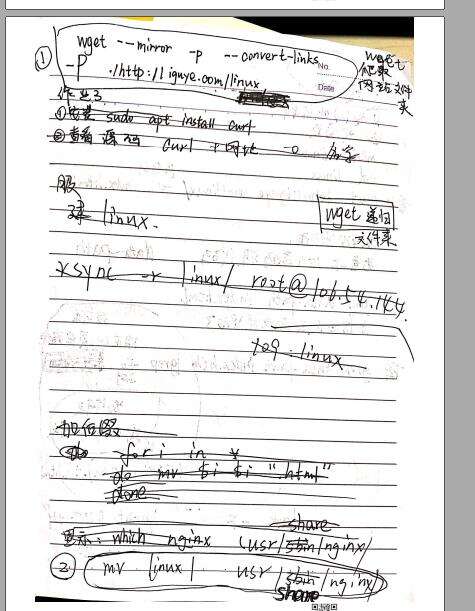 ① wget --mirror -p --convert-links
-P ./http://iguye.com/linux
No.
Date
wget
爬取
网站文件
夹
作业3
①安装 sudo apt install curl
②查看 源码 curl + 网址 -o 名字
linux.
wget 递归
文件夹
rsync -r linux/ root@106.54.144.
:linux
加后缀
for i in *
do mv $i $i ".html"
done
share
显示: which nginx (usr/sbin/nginx/
② mv linux/ usr/sbin/nginx/
share